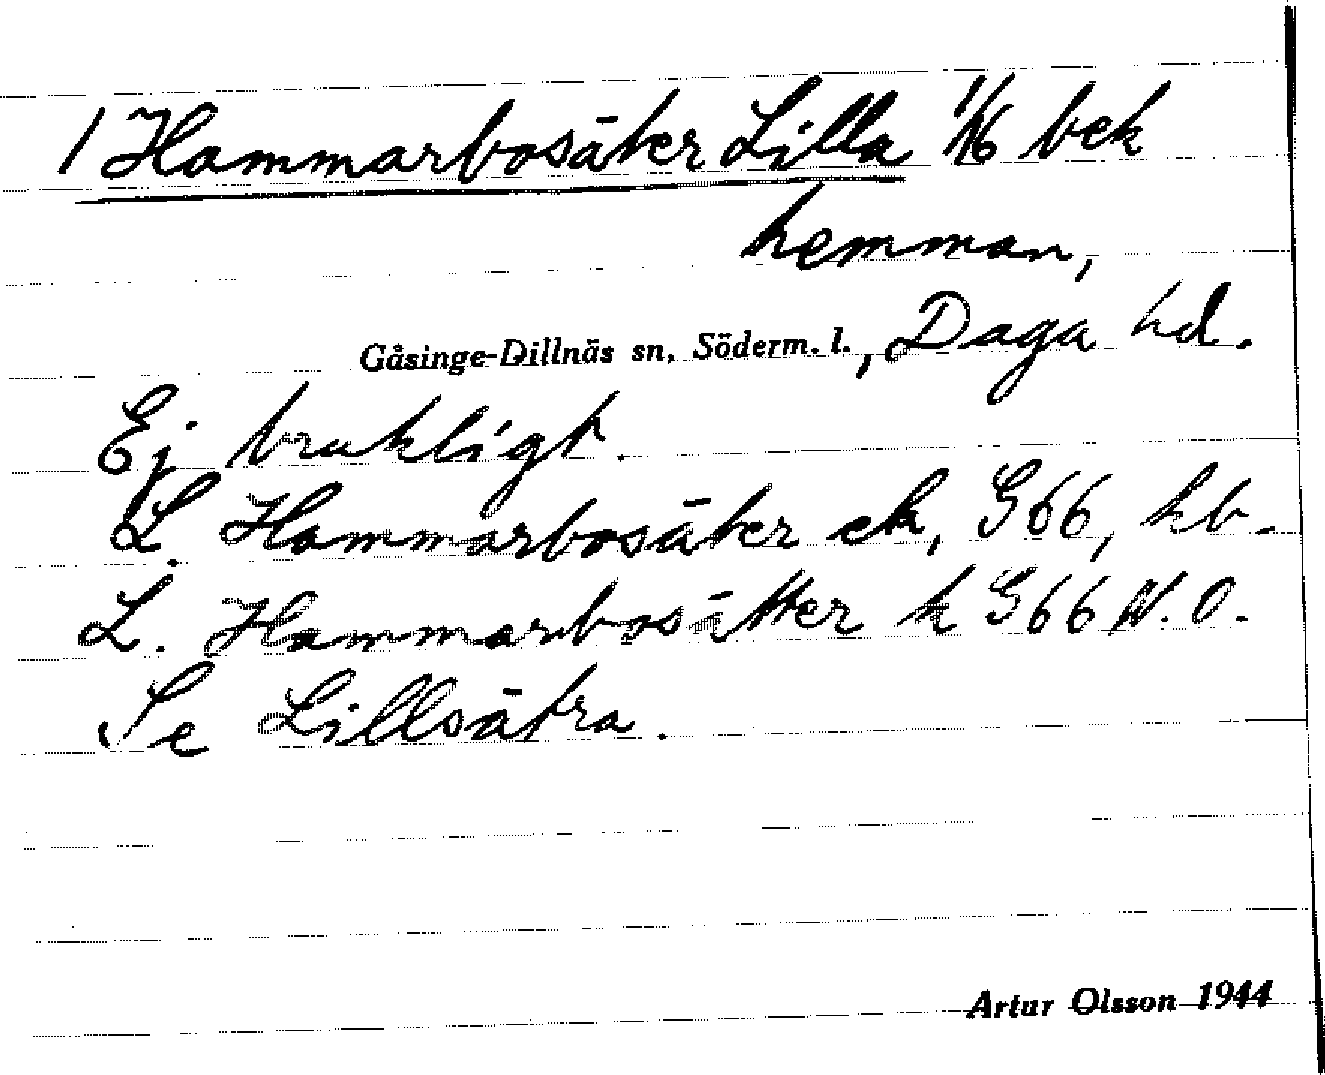 1 Hammarbosäter Lilla 1/16 bek
hemman,
Gåsinge-Dillnäs sn, Söderm. l., Daga hd.
Ej brukligt.
L. Hammarbosäter ek, G66, kb.
L. Hammarbosätter k G66 N.O.
Se Lillsätra.
Artur Olsson 1944